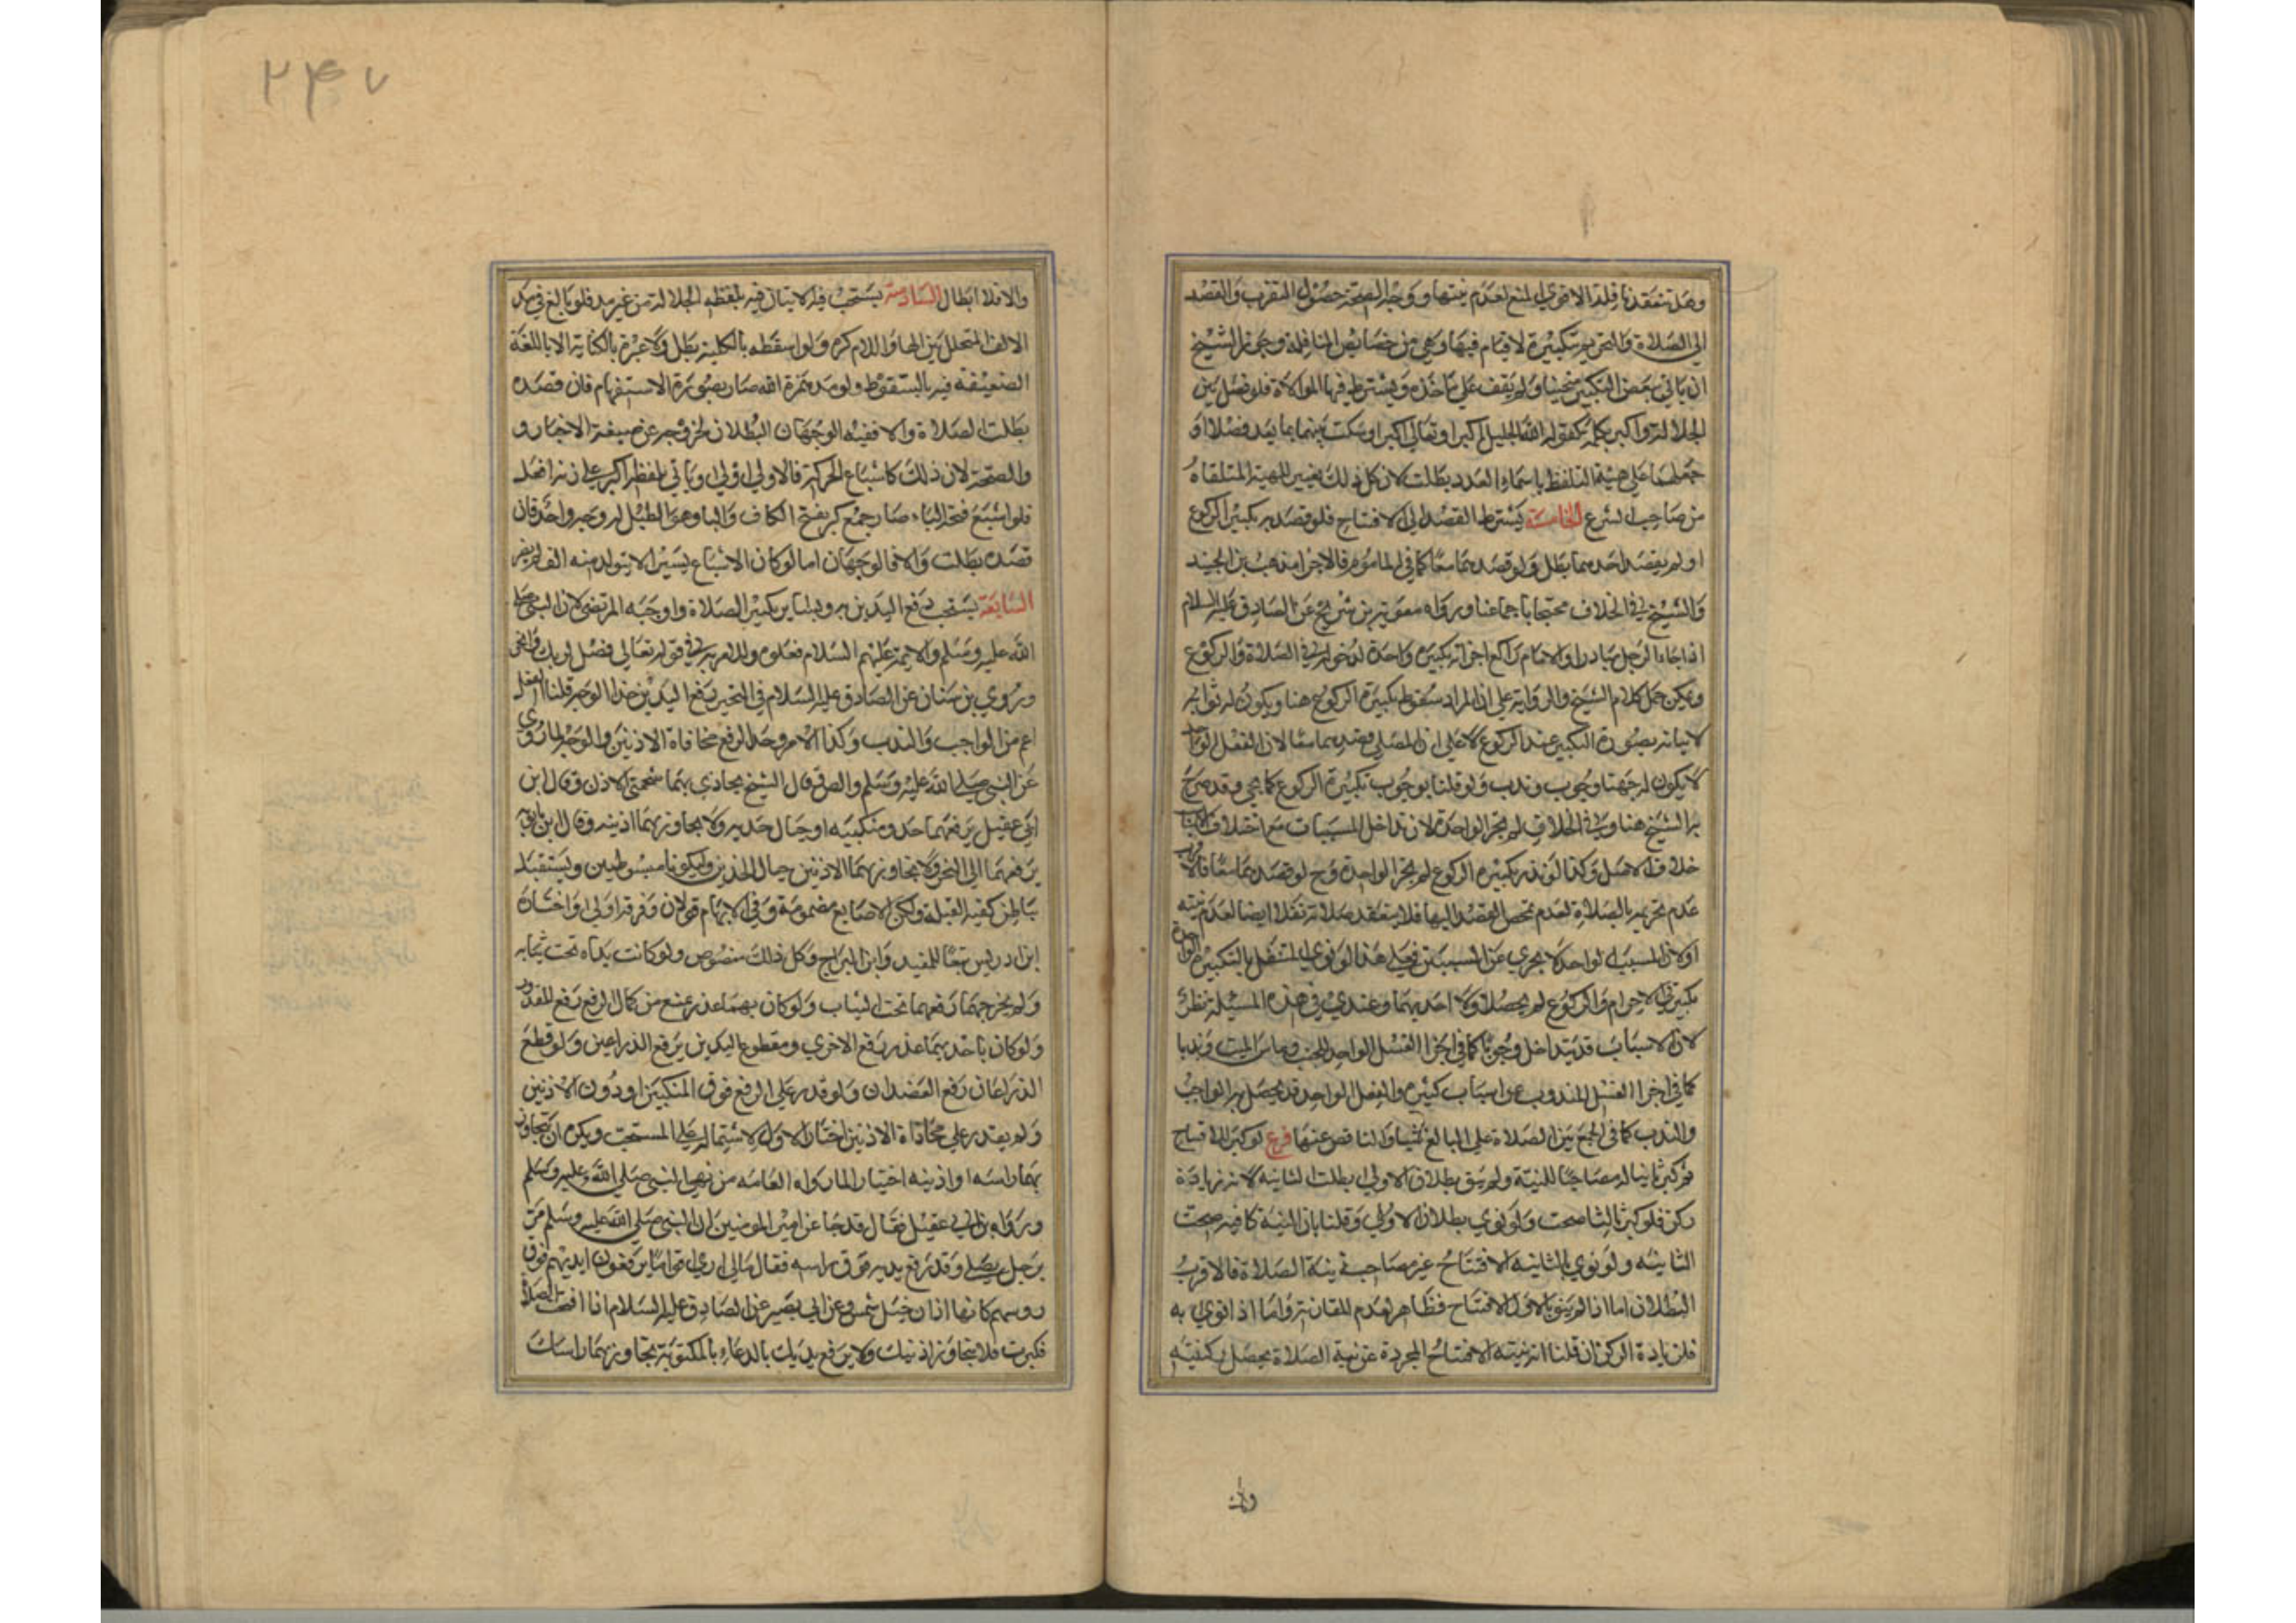 وهل تنعقد نافلة الاقوي المنع لعدم نيتها ووجه الصحة حصول التقرب والقصد
الي الصلاة والتحريم بتكبيرة لا قيام فيها وهي من خصائص النافلة وجوز الشيخ
ان ياتي ببعض التكبير منحنيا ولم يقف علي ماخذه ويشترط فيها الموالاة فلو فصل بين
الجلالة واكبر بكلمة كقوله الله الجليل اكبر او تعالي اكبر او سكت بينهما بما يعد فصلا او
جعلهما علي هيئة التلفظ باسماء العدد بطلت لان كل ذلك يغيير للهيئة المتلقاه
من صاحب الشرع الخامسة يشترط القصد الي الافتتاح فلو قصد به تكبير الركوع
او لم يقصد احدهما بطل ولو قصدهما معا كما في الماموم فالاجزا مذهب بن الجنيد
والشيخ في الخلاف محتجا باجماعنا ورواه معوية بن شريح عن الصادق عليه السلام
اذا جاء الرجل مبادرا والامام راكع اجزاته تكبيرة واحدة لدخوله في الصلاة والركوع
ويمكن حمل كلام الشيخ والرواية علي ان المراد سقوط تكبيرة الركوع هنا ويكون له ثوابه
لاتيانه بصورة التكبير عند الركوع لا علي ان المصلي قصدهما معا لان الفعل الواحد
لا يكون له جهتا وجوب وندب ولو قلنا بوجوب تكبيرة الركوع كما يجي وقد صرح
به الشيخ هنا وفي الخلاف لم يجز الواحدة لان تداخل المسببات مع اختلاف الاسباب
خلاف الاصل وكذا لو نذر تكبيرة الركوع لم يجز الواحدة وح لو قصدهما معا فالاقرب
عدم تحريمه بالصلاة لعدم تمحض القصد اليها فلا ينعقد صلاته نفلا ايضا لعدم نيته
او لان السبب الواحد لا يجزي عن المسببين فعلي هذا لو نوي المتنفل بالتكبيرة الواحدة
تكبيرتي الاحرام والركوع لم يحصلا ولا احديهما وعندي في هذه المسيلة نظر
لان الاسباب قد تتداخل وجوبا كما في اجزا الغسل الواحد للجنب وماس الميت وندبا
كما في اجزا الغسل المندوب عن اسباب كثيرة والفعل الواحد قد يحصل به الواجب
والندب كما في الجمع بين الصلاة علي البالغ ستا والناقص عنها فرع لو كبر للافتتاح
ثم كبر ثانيا له مصاحبا للنية ولم ينو بطلان الاولي بطلت الثانية لانه زيادة
ركن فلو كبر ثالثا صحت ولو نوي بطلان الاولي وقلنا بان النية كافية صحت
الثانية ولو نوي بالثانية الافتتاح غير مصاحب نية الصلاة فالاقرب
البطلان اما اذا لم ينو بالاول الافتتاح فظاهر لعدم المقارنة واما اذا نوي به
فلزيادة الركن ان قلنا ان نية الافتتاح المجردة عن نية الصلاة يحصل
والا
٢٤٧
والا فلا ابطال السادسة يستحب فيه الاتيان فيه بلفظه الجلالة من غير مد فلو بالغ في مد
الالف المتخلل بين الها واللام كره ولو اسقطه بالكلية بطل ولا عبرة بالكتابة الا باللغة
الضعيفة فيه بالسقوط ولو مد همزة الله صار بصورة الاستفهام فان قصده
بطلت الصلاة والا ففيه الوجهان البطلان لخروجه عن صيغة الاخبار و
والصحة لان ذلك كاشباع الحركة فالاولي اولي وياتي بلفظ اكبر علي زنة افعل
فلو اشبع فتحة الباء صار جمع كبر بفتح الكاف والبا وهو الطبل له وجه واحد فان
قصده بطلت والا فالوجهان اما لو كان الاشباع يسيرا لا يتولد منه الف لم يضر
السابعة يستحب رفع اليدين به وبساير تكبير الصلاة واوجبه المرتضي لان النبي صلي
الله عليه وسلم والايمة عليهم السلام فعلوه ولقوله في قوله تعالي فصل لربك وانحر
وروي بن سنان عن الصادق عليه السلام في النحر رفع اليدين حذا الوجه قلنا الفعل
اعم من الواجب والندب وكذا الامر وحد الرفع محاذاة الاذنين والوجه لما روي
عن النبي صلي الله عليه وسلم والصادق قال الشيخ يحاذي بهما شحمتي الاذن وقال ابن
ابي عقيل يرفعهما حذو منكبيه او حيال خديه ولا يجاوز بهما اذنيه وقال ابن بابويه
يرفعهما الي النحر ولا يجاوز بهما الاذنين حيال الخدين وليكونا مبسوطتين ويستقبل
بباطن كفيه القبلة ولتكن الاصابع مضمومة وفي الابهام قولان وفرقه اولي واختاره
ابن ادريس تبعا للمفيد وابن البراج وكل ذلك منصوص ولو كانت يداه تحت ثيابه
ولم يخرجهما رفعهما تحت الثياب ولو كان بهما عذر يمنع من كمال الرفع رفع المقدور
ولو كان باحديهما عذر رفع الاخري ومقطوع اليدين يرفع الذراعين ولو قطع
الذراعان رفع العضدان ولو قدر علي الرفع فوق المنكبين او دون الاذنين
ولم يقدر علي محاذاة الاذنين اختار الاول لاشتماله علي المستحب ويكره ان يتجاوز
بهما راسه او اذنيه اختيارا لما رواه العامه من نهي النبي صلي الله عليه وسلم
ورواه بن ابي عقيل فقال قد جا عن امير المومنين ان النبي صلي الله عليه وسلم مر
برجل يصلي وقد رفع يديه فوق راسه فقال مالي اري قواما يرفعون ايديهم فوق
روسهم كانها اذان خيل شمس وعن ابي بصير عن الصادق عليه السلام اذا افتتحت الصلاة
فكبرت فلا يتجاوز اذنيك ولا ترفع يديك بالدعاء بالمكتوبة يتجاوز بهما راسك